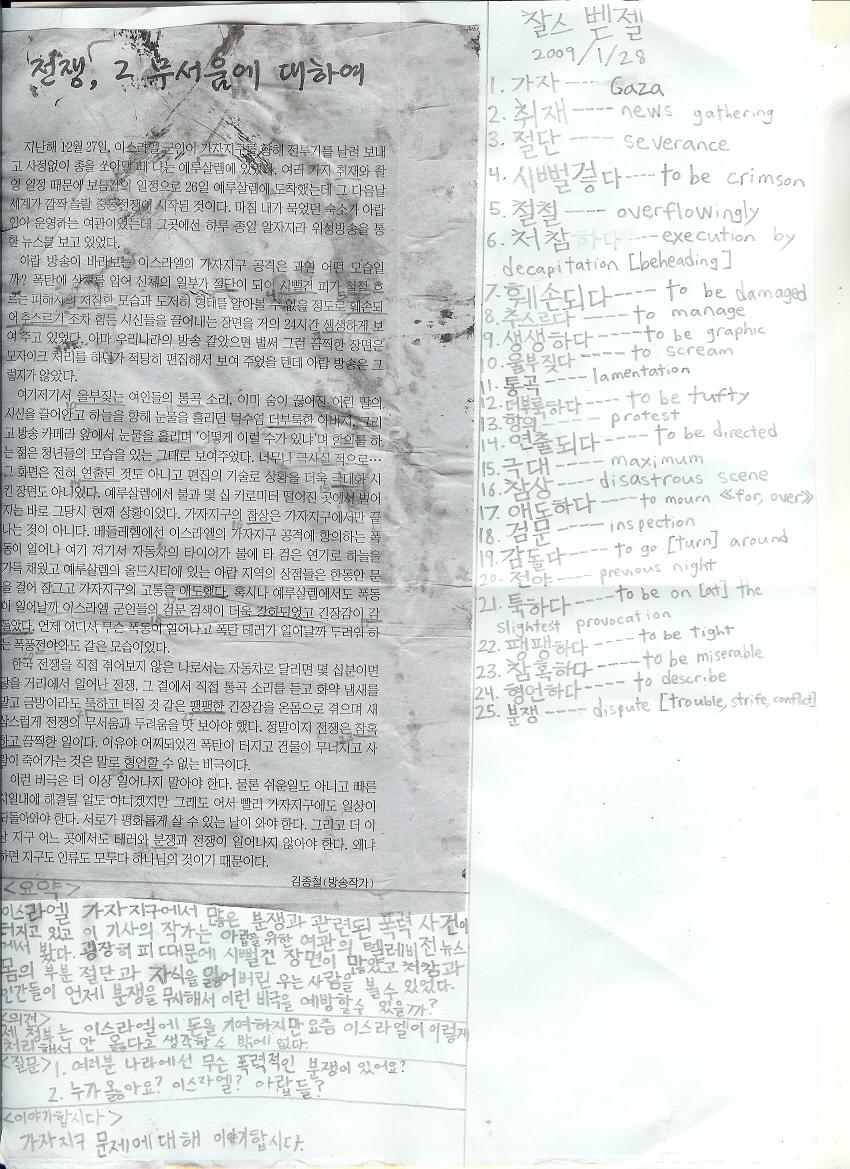 전쟁, 그 무서움에 대하여
지난해 12월 27일, 이스라엘 군인이 가자지구를 향해 전투기를 날려 보내
고 사정없이 총을 쏘아댈 때 나는 예루살렘에 있었다. 여러 가지 취재와 촬
영 일정 때문에 보름간의 일정으로 26일 예루살렘에 도착했는데 그 다음날
세계가 깜짝 놀랄 중동전쟁이 시작된 것이다. 마침 내가 묵었던 숙소가 아랍
인이 운영하는 여관이었는데 그곳에선 하루 종일 알자지라 위성방송을 통
한 뉴스를 보고 있었다.
아랍 방송이 바라보는 이스라엘의 가자지구 공격은 과연 어떤 모습일
까? 폭탄에 상처를 입어 신체의 일부가 절단이 되어 시뻘건 피가 철철 흐
르는 피해자의 처참한 모습과 도저히 형태를 알아볼 수 없을 정도로 훼손되
어 추스르기 조차 힘든 시신들을 끌어내는 장면을 거의 24시간 생생하게 보
여 주고 있었다. 아마 우리나라의 방송 같았으면 벌써 그런 끔찍한 장면은
모자이크 처리를 하던가 적당히 편집해서 보여 주었을 텐데 아랍 방송은 그
렇지가 않았다.
여기저기서 울부짖는 여인들의 통곡 소리, 이미 숨이 끊어진 어린 딸의
시신을 끌어안고 하늘을 향해 눈물을 흘리던 턱수염 더부룩한 아버지, 그리
고 방송 카메라 앞에서 눈물을 흘리며 '어떻게 이럴 수가 있냐'며 항의를 하
는 젊은 청년들의 모습을 있는 그대로 보여주었다. 너무나 극사실 적으로…
그 화면은 전혀 연출된 것도 아니고 편집의 기술로 상황을 더욱 극대화 시
킨 장면도 아니었다. 예루살렘에서 불과 몇 십 키로미터 떨어진 곳에서 벌어
지는 바로 그당시 현재 상황이었다. 가자지구의 참상은 가자지구에서만 끝
나는 것이 아니다. 베들레헴에선 이스라엘의 가자지구 공격에 항의하는 폭
동이 일어나 여기 저기서 자동차의 타이어가 불에 타 검은 연기로 하늘을
가득 채웠고 예루살렘의 올드시티에 있는 아랍 지역의 상점들은 한동안 문
을 걸어 잠그고 가자지구의 고통을 애도했다. 혹시나 예루살렘에서도 폭동
이 일어날까 이스라엘 군인들의 검문 검색이 더욱 강화되었고 긴장감이 감
돌았다. 언제 어디서 무슨 폭동이 일어나고 폭탄 테러가 일어날까 두려워 하
는 폭풍전야와도 같은 모습이었다.
한국 전쟁을 직접 겪어보지 않은 나로서는 자동차로 달리면 몇 십분이면
닿을 거리에서 일어난 전쟁, 그 곁에서 직접 통곡 소리를 듣고 화약 냄새를
맡고 금방이라도 툭하고 터질 것 같은 팽팽한 긴장감을 온몸으로 겪으며 새
삼스럽게 전쟁의 무서움과 두려움을 맛 보아야 했다. 정말이지 전쟁은 참혹
하고 끔찍한 일이다. 이유야 어찌되었건 폭탄이 터지고 건물이 무너지고 사
람이 죽어가는 것은 말로 형언할 수 없는 비극이다.
이런 비극은 더 이상 일어나지 말아야 한다. 물론 쉬운일도 아니고 빠른
시일내에 해결될 일도 아니겠지만 그래도 어서 빨리 가자지구에도 일상이
되돌아와야 한다. 서로가 평화롭게 살 수 있는 날이 와야 한다. 그리고 더 이
상 지구 어느 곳에서도 테러와 분쟁과 전쟁이 일어나지 않아야 한다. 왜냐
하면 지구도 인류도 모두다 하나님의 것이기 때문이다.
김종철(방송작가)
<요약>
이스라엘 가자지구에서 많은 분쟁과 관련된 폭력 사건이
터지고 있고 이 기사의 작가는 아랍을 위한 여관의 텔레비전 뉴스
에서 봤다. 굉장히 피 때문에 시뻘건 장면이 많았고 처참과
몸의 부분 절단과 자식을 잃어버린 우는 사람을 볼 수 있었다.
인간들이 언제 분쟁을 무시해서 이런 비극을 예방할 수 있을까?
<의견>
제 정부는 이스라엘에 돈을 기여하지만 요즘 이스라엘이 이렇게
처리해서 안 옳다고 생각할 수 밖에 없다.
<질문> 1. 여러분 나라에선 무슨 폭력적인 분쟁이 있어요?
2. 누가 옳아요? 이스라엘? 아랍들?
<이야기합시다>
가자지구 문제에 대해 이야기합시다.
찰스 벤젤
2009/1/28
1. 가자---- Gaza
2. 취재---- news gathering
3. 절단---- severance
4. 시뻘겋다----to be crimson
5. 철철---- overflowingly
6. 처참하다----execution by
decapitation [beheading]
7. 훼손되다---- to be damaged
8. 추스르다---- to manage
9. 생생하다----to be graphic
10. 울부짖다---- to scream
11. 통곡---- lamentation
12. 더부룩하다---- to be tufty
13. 항의---- protest
14. 연출되다----to be directed
15. 극대---- maximum
16. 참상---- disastrous scene
17. 애도하다----to mourn ≪for, over≫
18. 검문---- inspection
19. 감돌다---- to go [turn] around
20. 전야---- previous night
21. 툭하다----to be on [at] the
slightest provocation
22. 팽팽하다---- to be tight
23. 참혹하다---- to be miserable
24. 형언하다---- to describe
25. 분쟁---- dispute [trouble, strife, conflict]